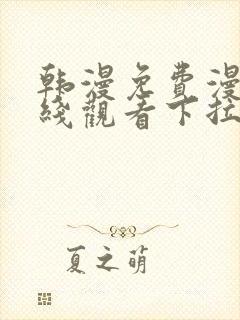 韩漫免費漫
綫觀看下拉
夏之萌